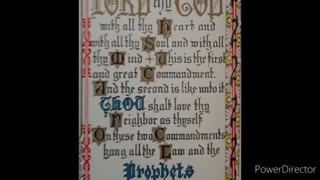 LORD thy GOD
with all thy Heart and
with all thy Soul and with all
thy Mind + This is the first
and great Commandment.
And the second is like unto it
THOU shalt love thy
Neighbor as thyself
On these two Commandments
hang all the Law and the
Prophets
PowerDirector